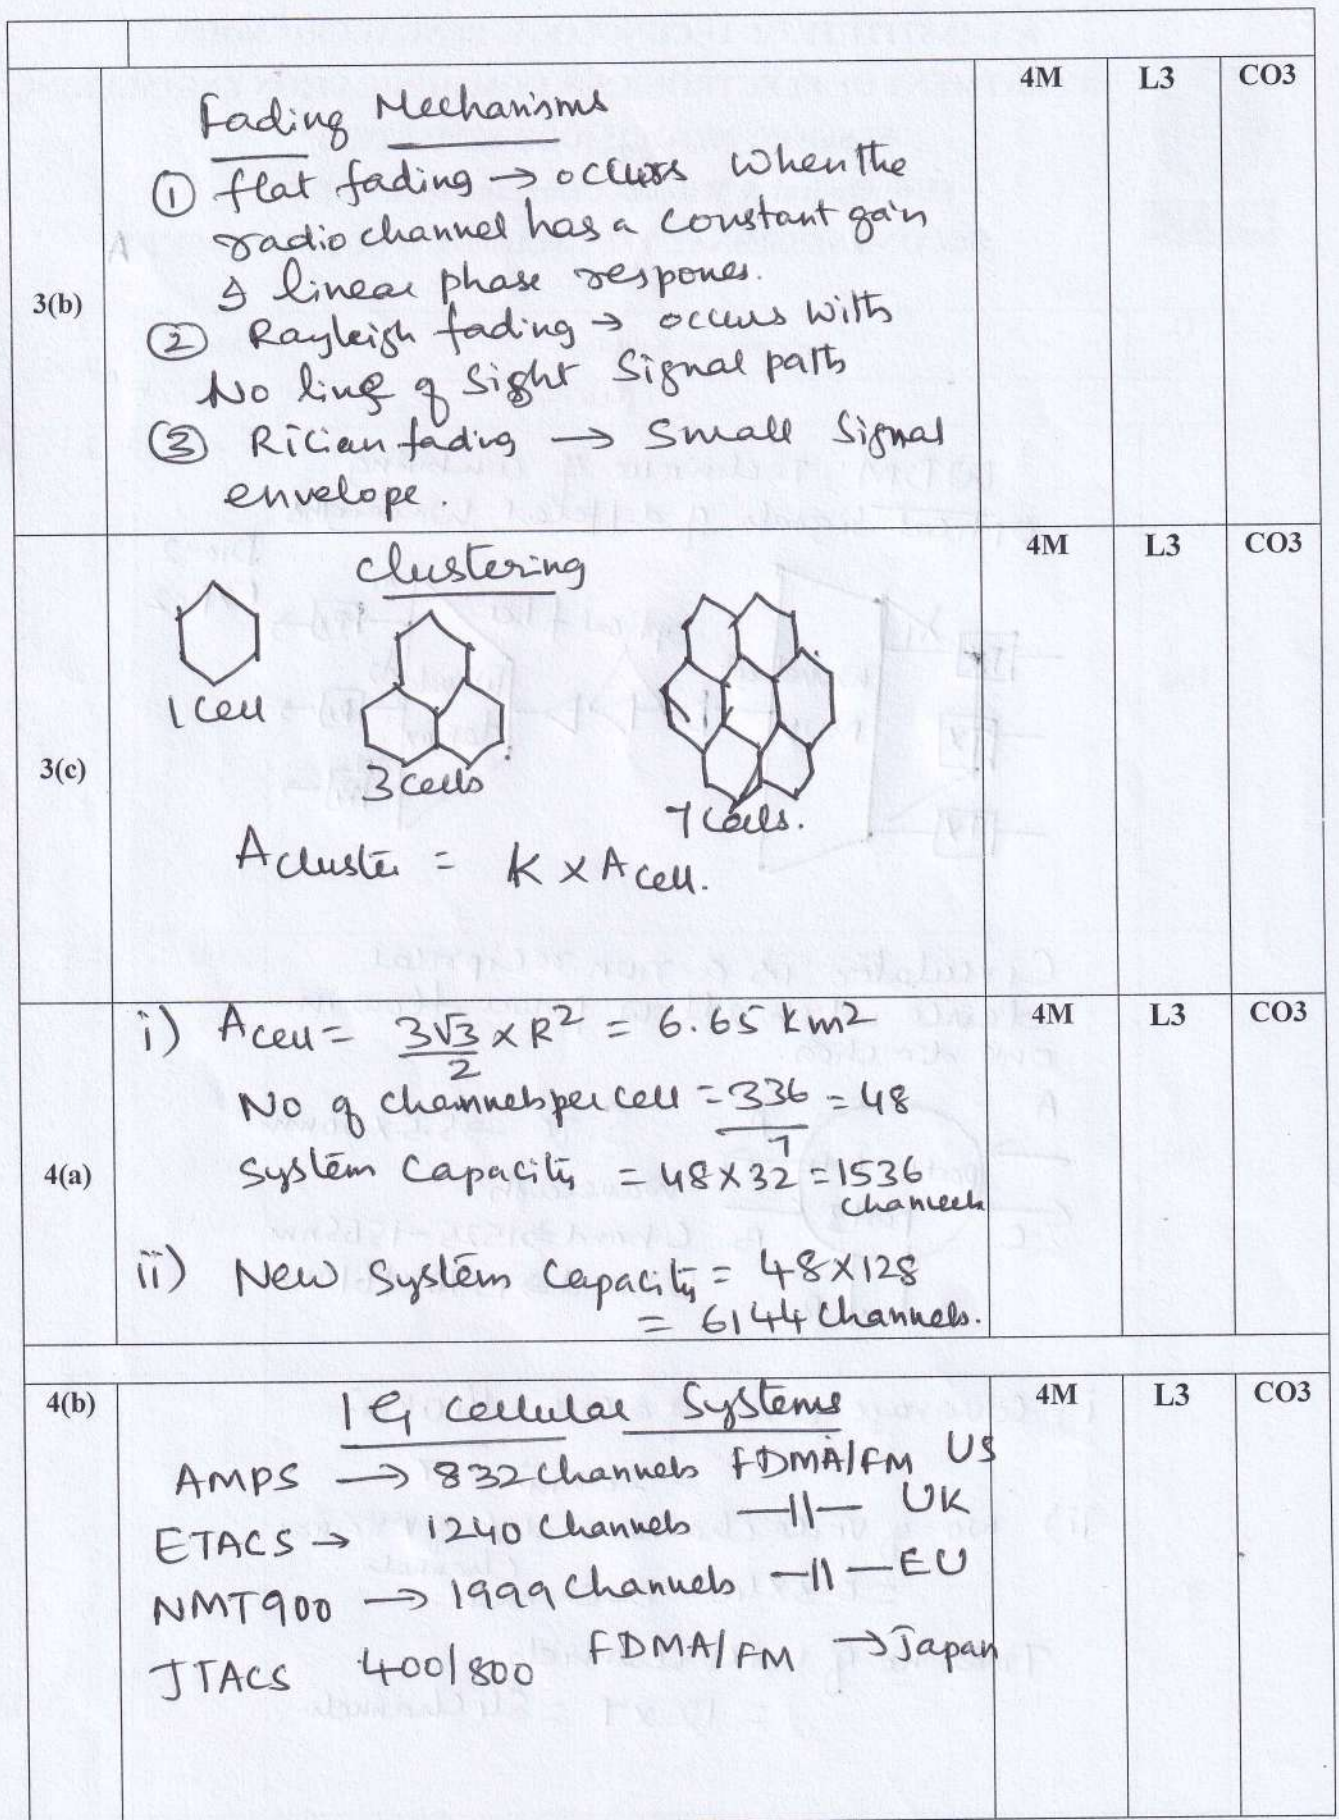 4M L3 CO3
3(b)
Fading Mechanisms
① flat fading → occurs when the
radio channel has a constant gain
& linear phase respones.
② Rayleigh fading → occurs with
No line of Sight Signal path
③ Rician fading → Small Signal
envelope.
4M L3 CO3
3(c)
Clustering
1 Cell
3 Cells
7 Cells.
A cluster = K x A cell.
4M L3 CO3
4(a)
i) A cell = 3√3/2 x R² = 6.65 km2
No of channels per cell = 336/7 = 48
System Capacity = 48 x 32 = 1536
channels
ii) New System Capacity = 48 x 128
= 6144 Channels.
4(b) 4M L3 CO3
1G Cellular Systems
AMPS → 832 Channels FDMA/FM US
ETACS → 1240 Channels —||— UK
NMT900 → 1999 Channels —||— EU
JTACS 400/800 FDMA/FM → Japan